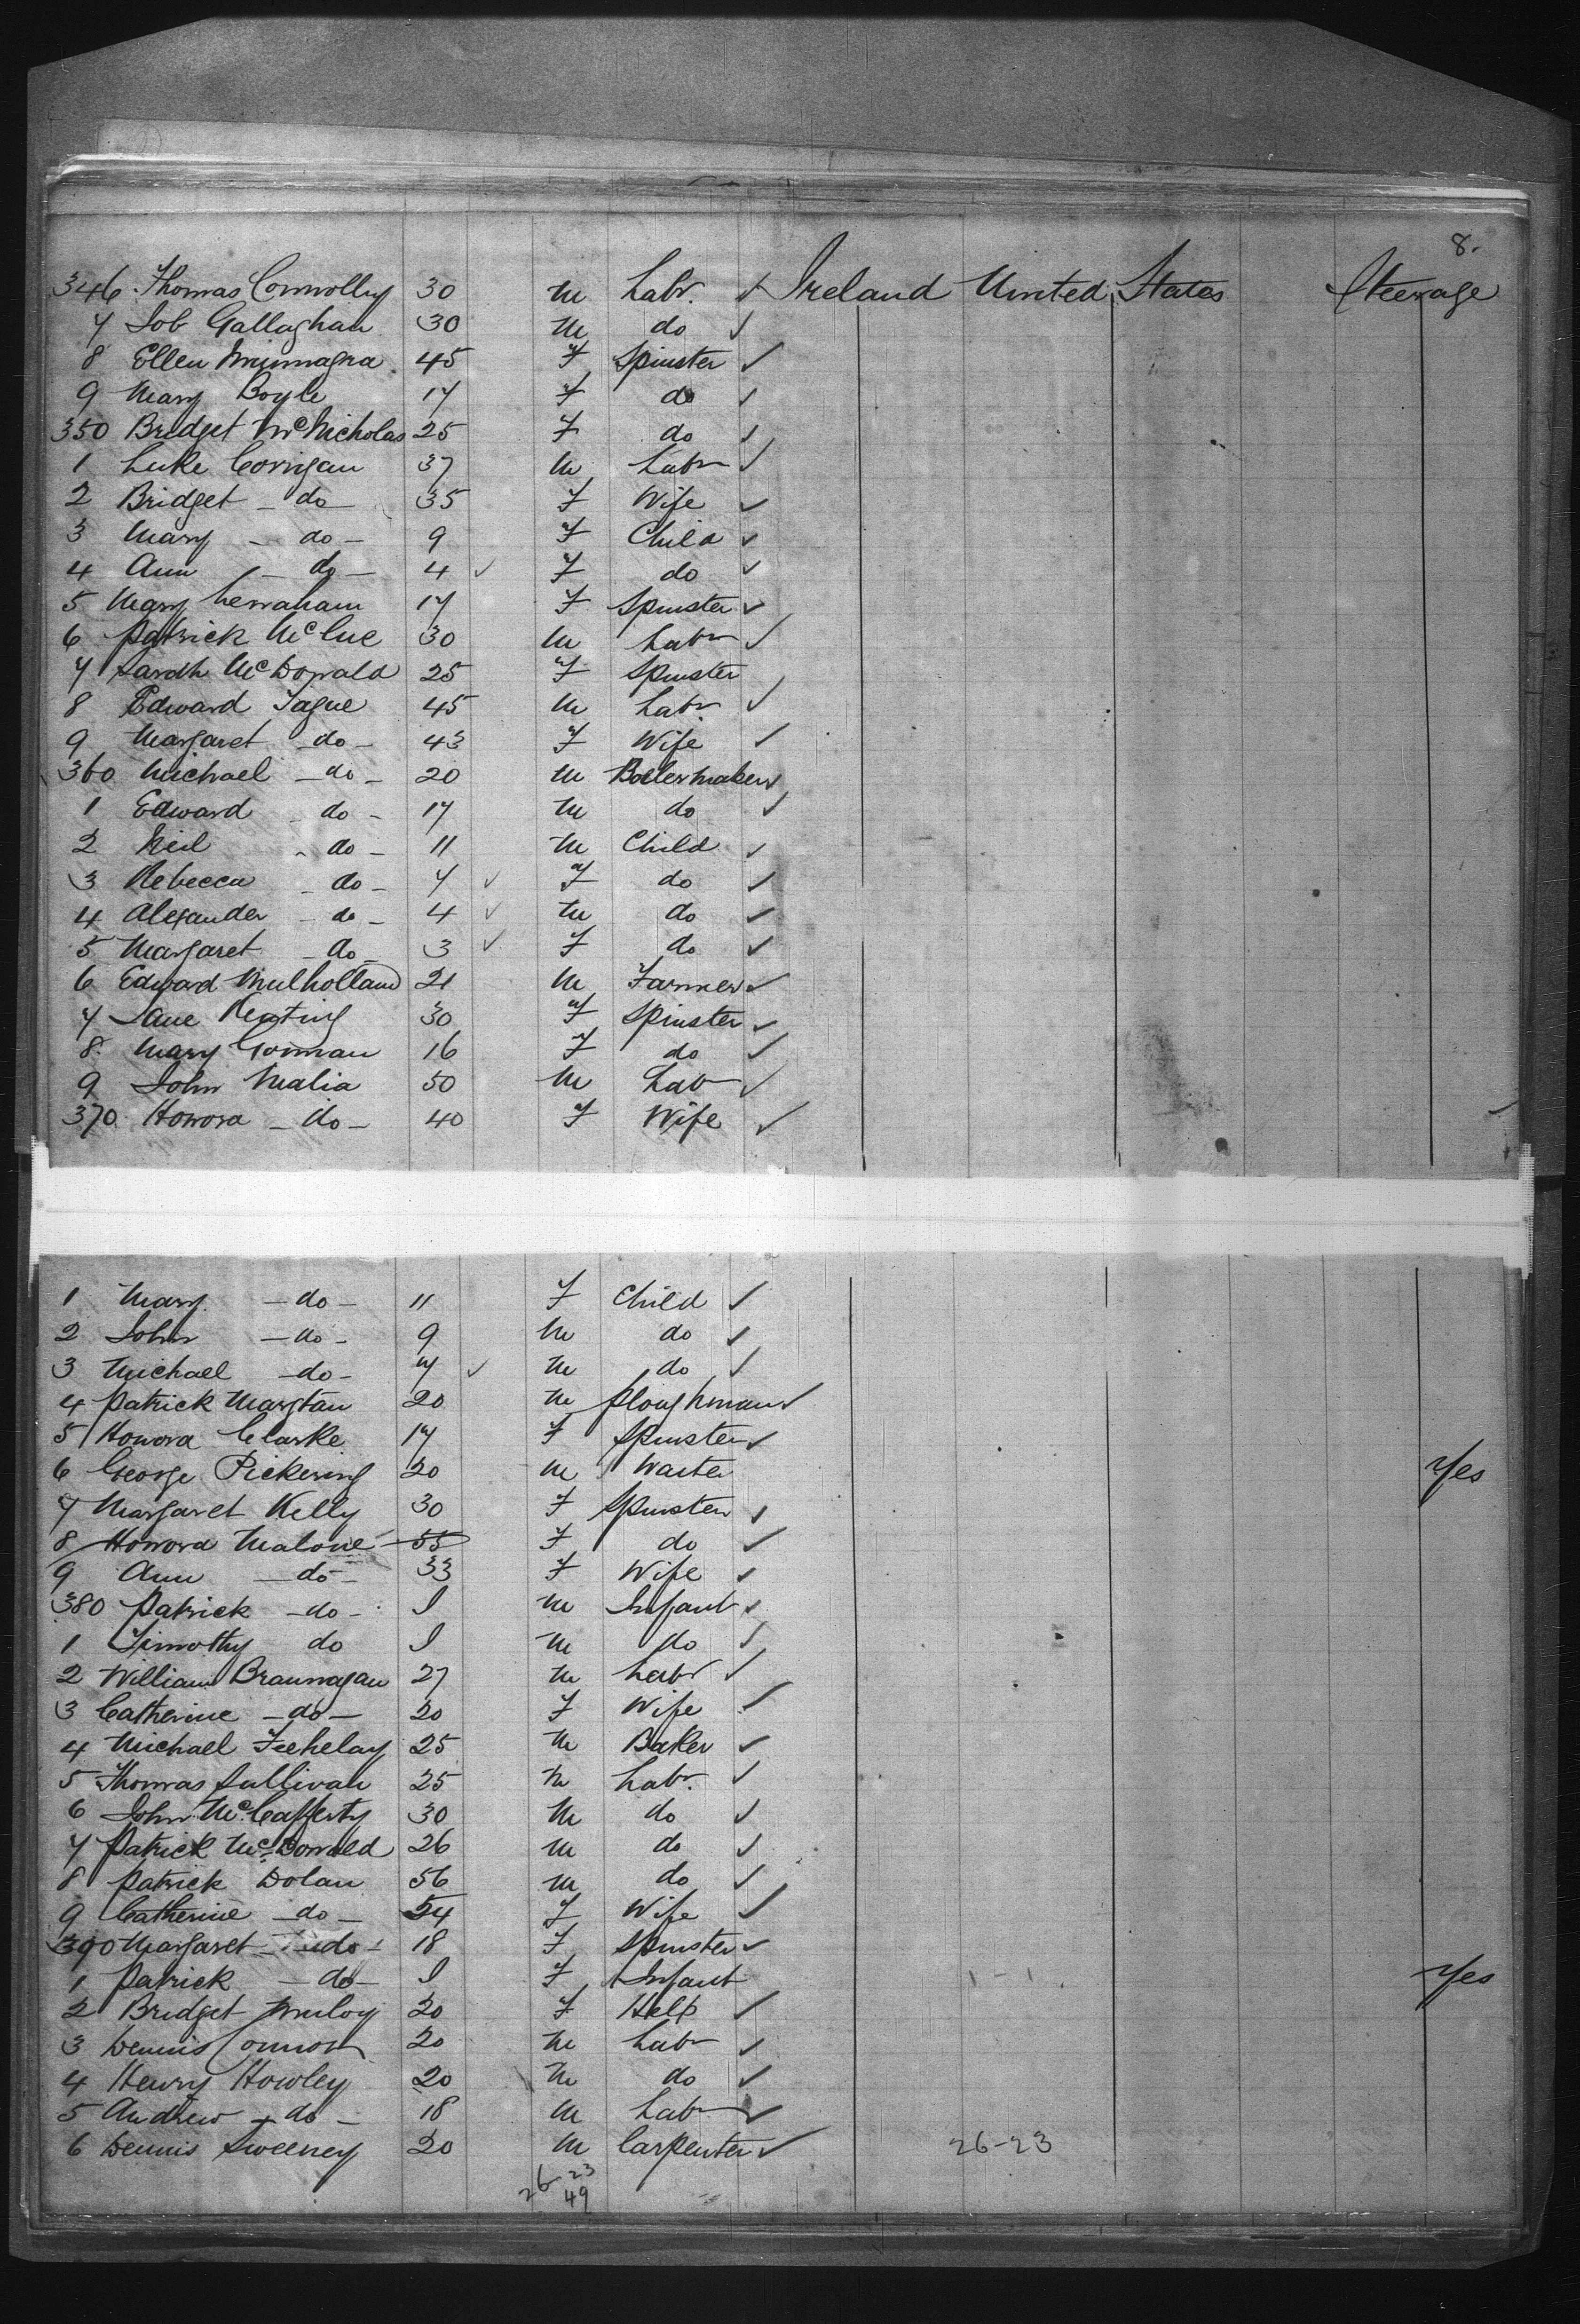 8.
346 Thomas Connolly 30 M Labr. ✓ Ireland United States Steerage
7 Job Gallaghan 30 M do ✓
8 Ellen 45 F Spinster ✓
9 Mary Boyle 17 F do ✓
350 Bridget McNicholas 25 F do ✓
1 Luke Corrigan 37 M Labr ✓
2 Bridget - do - 35 F Wife ✓
3 Mary - do - 9 F Child ✓
4 Ann - do - 4 ✓ F do ✓
5 Mary Lenaham 17 F Spinster ✓
6 Patrick McCue 30 M Labr ✓
7 Sarah McDonald 25 F Spinster
8 Edward Tague 45 M Labr. ✓
9 Margaret - do - 43 F Wife ✓
360 Michael - do - 20 M Boilermaker ✓
1 Edward - do - 17 M do ✓
2 Neil - do - 11 M Child ✓
3 Rebecca - do - 7 ✓ F do ✓
4 Alexander - do - 4 ✓ M do ✓
5 Margaret - do - 3 ✓ F do ✓
6 Edward Mulholland 21 M Farmer ✓
7 Jane Keating 30 F Spinster ✓
8 Mary Gorman 16 F do ✓
9 John Malia 50 M Lab ✓
370 Honora - do - 40 F Wife ✓
1 Mary - do - 11 F Child ✓
2 John - do - 9 M do ✓
3 Michael - do - 7 ✓ M do ✓
4 Patrick 20 M Ploughman ✓
5 Honora Clarke 17 F Spinster ✓
6 George Pickering 20 M Waiter Yes
7 Margaret Kelly 30 F Spinster ✓
8 Honora Malone 55 F do ✓
9 Ann - do - 33 F Wife ✓
380 Patrick - do - I M Infant ✓
1 Timothy do I M do ✓
2 William Brannagan 27 M Labr ✓
3 Catherine - do - 20 F Wife ✓
4 Michael Feehelay 25 M Baker ✓
5 Thomas Sullivan 25 M Labr. ✓
6 John McCafferty 30 M do ✓
7 Patrick McDonald 26 M do ✓
8 Patrick Dolan 56 M do ✓
9 Catherine - do - 54 F Wife ✓
390 Margaret - do - 18 F Spinster ✓
1 Patrick - do - I F Infant Yes
2 Bridget Muloy 20 F Help ✓
3 Dennis Connor 20 M Labr ✓
4 Henry Howley 20 M do ✓
5 Andrew - do - 18 M Lab ✓
6 Dennis Sweeney 20 M Carpenter ✓ 26-23
26-23
49